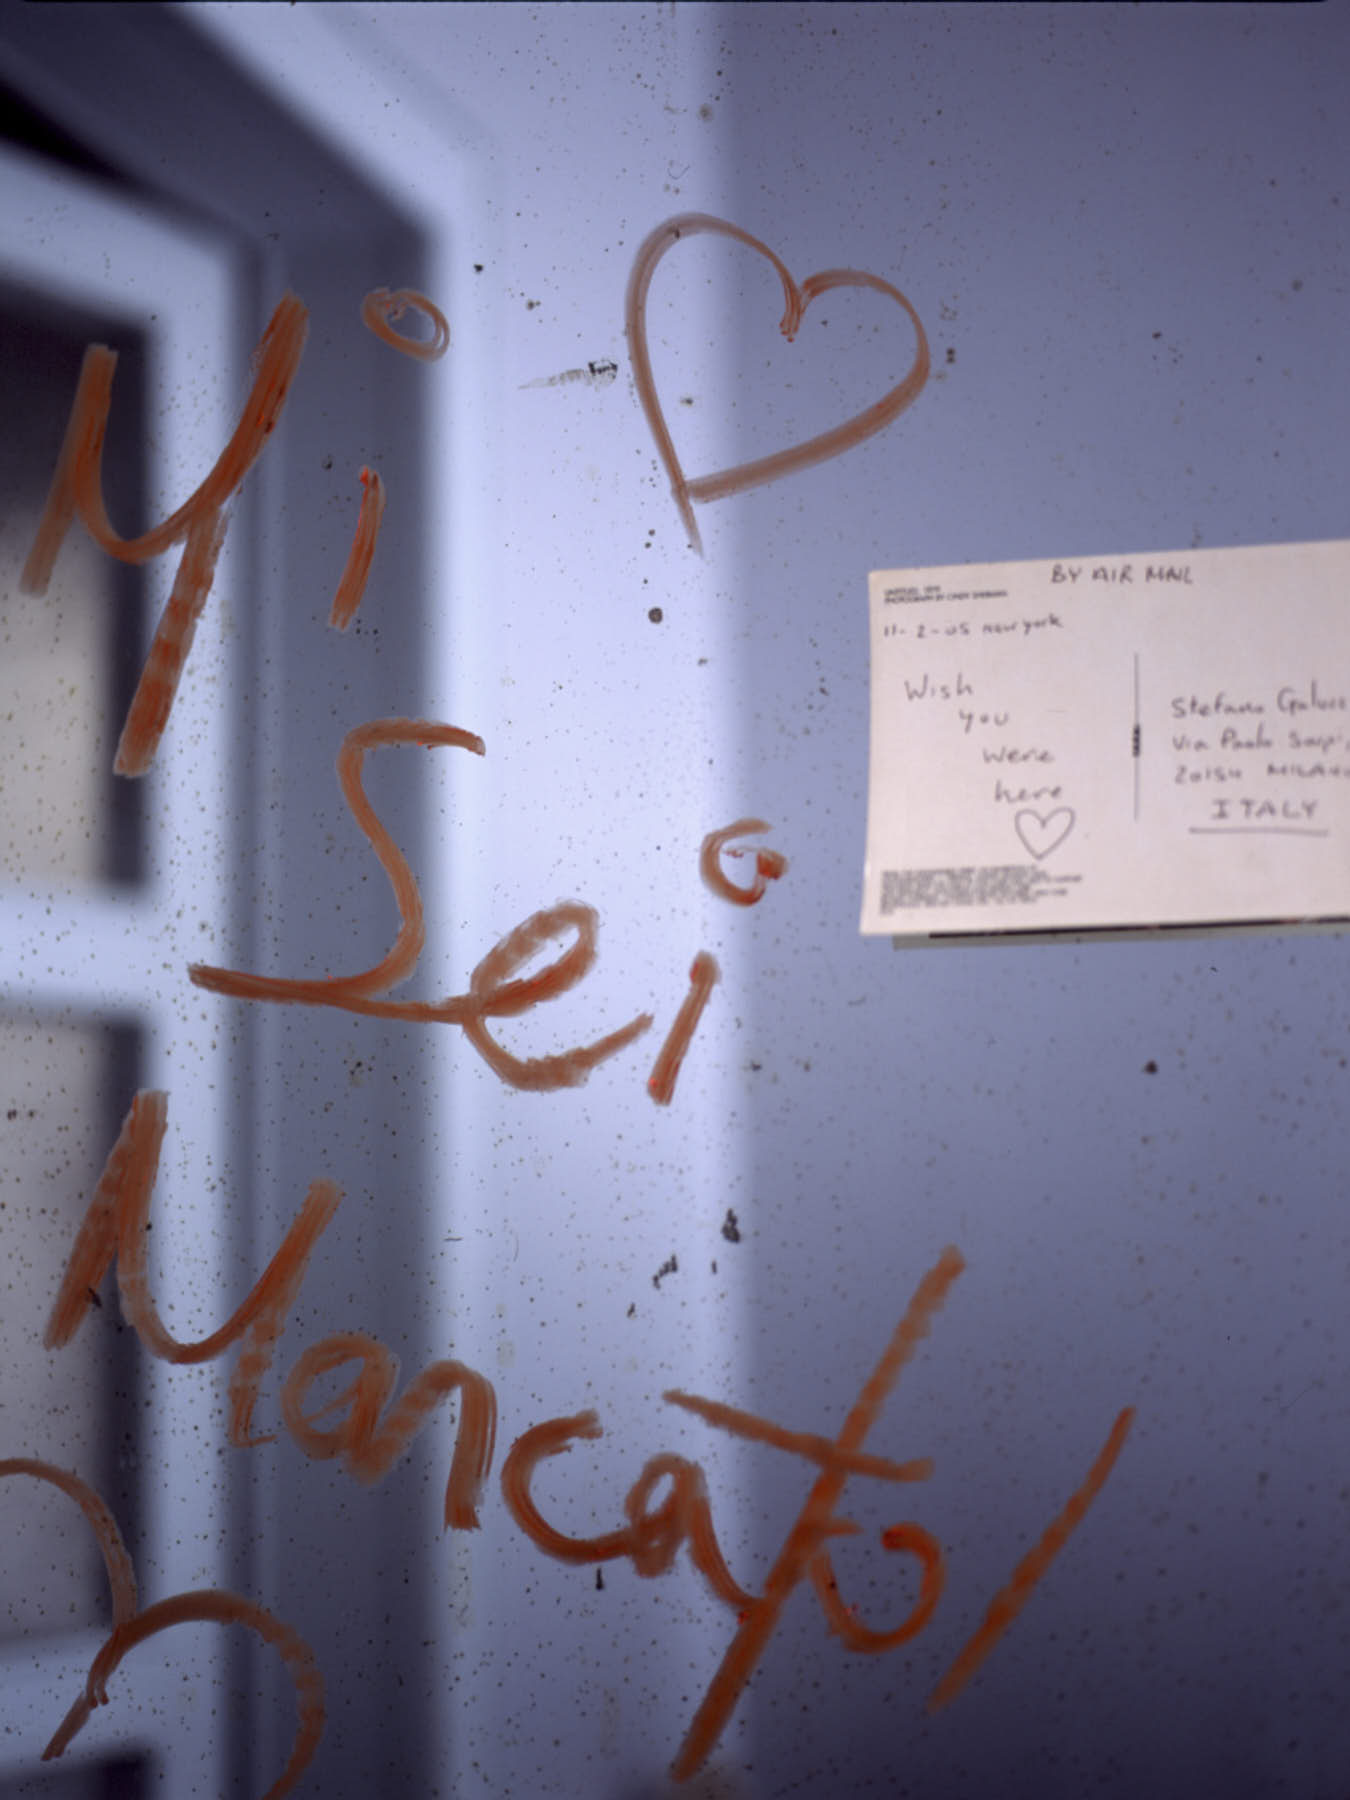 Mi
Sei
Mancato!
BY AIR MAIL
UNTITLED, 1979
PHOTOGRAPH BY CINDY SHERMAN
11-2-05 New York
Wish
you
were
here
Stefano
Via Paolo Sarpi,
20154 MILANO
ITALY